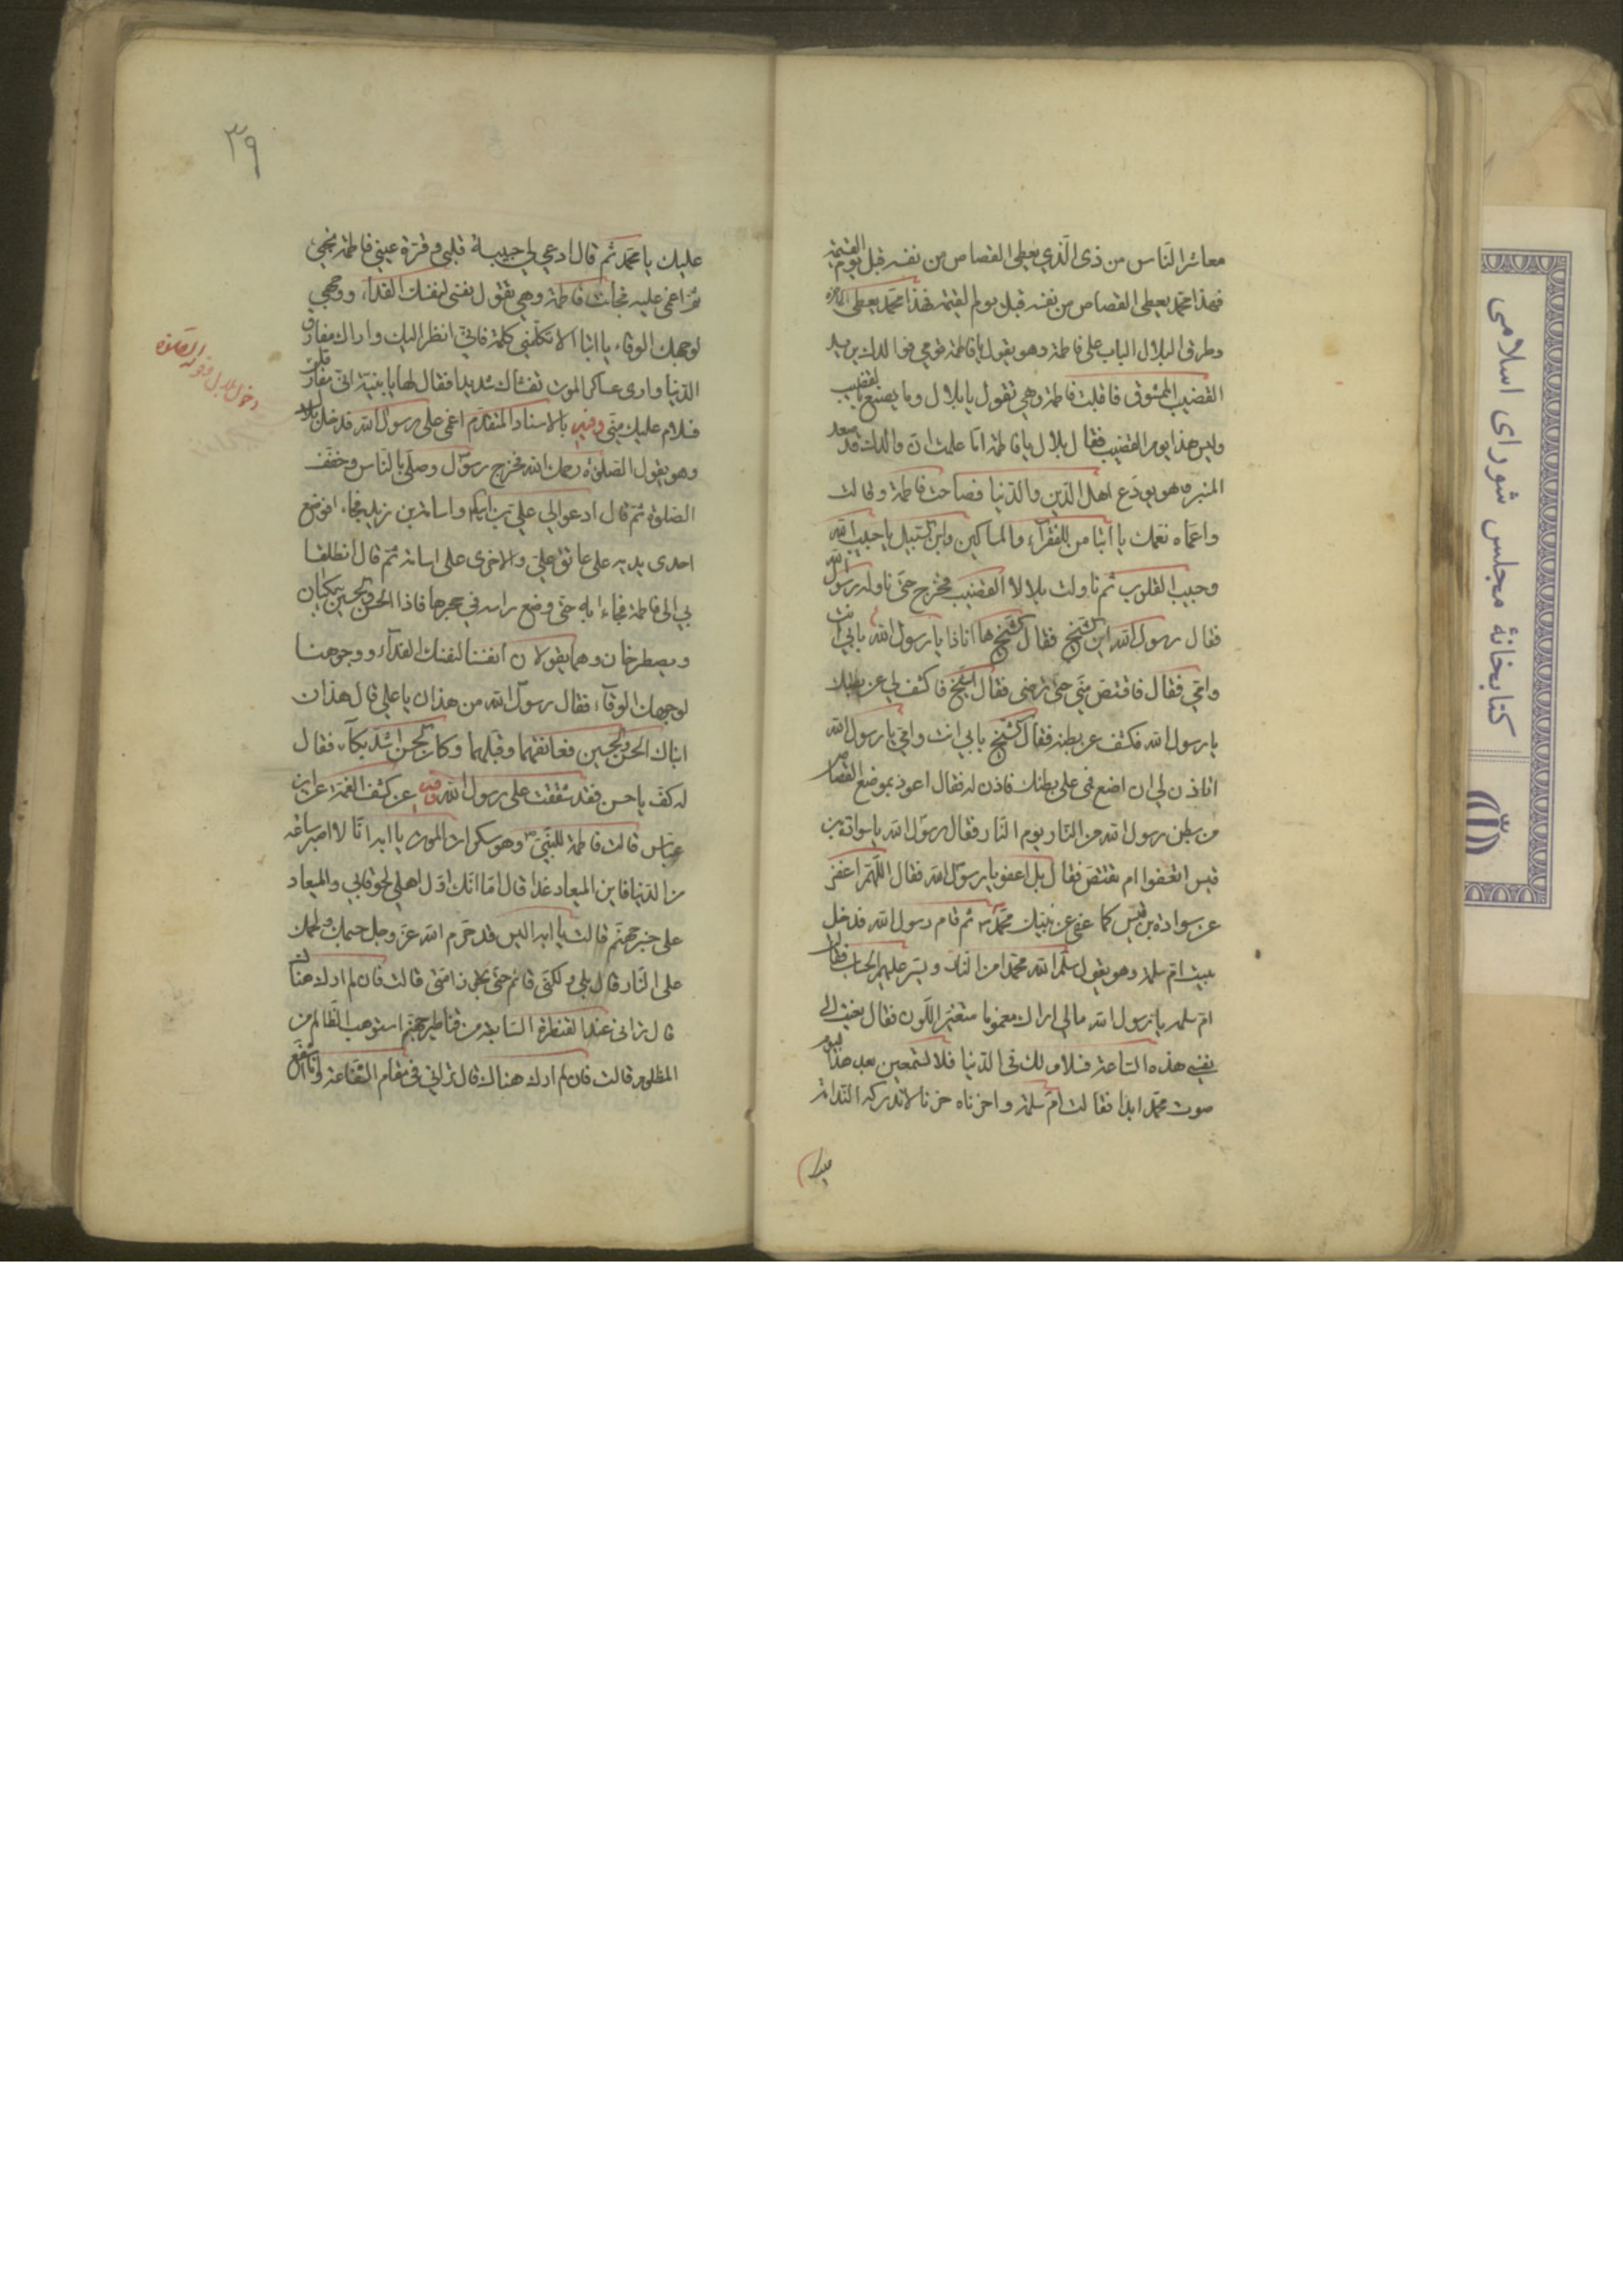 معاشر النّاس من ذى الّذي يعطى القصاص من نفسه قبل يوم القيمة
فهذا محمّد يعطى القصاص من نفسه قبل يوم القيمة فهذا محمّد يعطى
وطرق البلال الباب على فاطمة وهو يقول يا فاطمة قومي فوالدك يريد
القضيب الممشوق فاقبلت فاطمة وهي تقول يا بلال وما يصنع بالقضيب
وليس هذا يوم القضيب فقال بلال يا فاطمة اما علمت ان والدك قد صعد
المنبر وهو يودّع اهل الدّين والدّنيا فصاحت فاطمة وقالت
واغمّاه لغمّك يا ابتا من للفقرآء والمساكين وابن السّبيل يا حبيب الله
وحبيب القلوب ثم ناولت بلالا القضيب فخرج حتّى ناوله رسول الله
فقال رسول الله اين الشّيخ فقال الشّيخ ها انا ذا يا رسول الله بابي انت
وامّي فقال فاقتصّ منّي حتّى ترضى فقال الشّيخ فاكشف لي عن بطنك
يا رسول الله فكشف عن بطنه فقال الشّيخ بابي انت وامّي يا رسول الله
اتاذن لي ان اضع فمى على بطنك فاذن له فقال اعوذ بموضع القصاص
من بطن رسول الله من النّار يوم النّار فقال رسول الله يا سوادة بن
قيس اتعفوا ام تقتصّ فقال بل اعفو يا رسول الله فقال اللّهمّ اعف
عن سوادة بن قيس كما عفى عن نبيّك محمّد ثم قام رسول الله فدخل
بيت امّ سلمة وهو يقول سلّم الله محمّدا من النّار ويسّر عليهم الحساب فقالت
امّ سلمة يا رسول الله مالي اراك مغموما متغيّر اللّون فقال نعيت الى
نفسي هذه السّاعة فسلام لك فى الدّنيا فلا تسمعين بعد هذا اليوم
صوت محمّد ابدا فقالت امّ سلمة واحزناه حزنا لا تدركه النّدامة
عليك
٣٩
عليك يا محمّد ثم قال ادعي لي حبيبة قلبي وقرّة عيني فاطمة تجي
ثمّ اغمي عليه فجائت فاطمة وهي تقول نفسي لنفسك الفدآء ووجهي
لوجهك الوقاء يا ابتا الا تكلّمني كلمة فانّي انظر اليك واراك مفارق
الدّنيا وارى عساكر الموت تغشاك شديدا فقال لها يا بنيّة انّي مفارقك
فسلام عليك منّي وفيه بالاسناد المتقدّم اغمي على رسول الله فدخل بلال
وهو يقول الصّلوة رحمك الله فخرج رسول وصلّى بالنّاس وخفّف
الصّلوة ثمّ قال ادعوا لي عليّ بن ابيطالب واسامة بن زيد فجاءا فوضع
احدى يديه على عاتق عليّ والاخرى على اسامة ثمّ قال انطلقا
بي الى فاطمة فجاءا به حتّى وضع راسه في حجرها فاذا الحسن والحسين يبكيان
ويصطرخان وهما يقولان انفسنا لنفسك الفدآء ووجوهنا
لوجهك الوقآء فقال رسول الله من هذان يا علي قال هذان
ابناك الحسن والحسين فعانقهما وقبّلهما وكان الحسن اشدّ بكآء فقال
له كفّ يا حسن فقد شققت على رسول الله وفيه عن كشف الغمّة عن ابن
عبّاس قالت فاطمة للنّبيّ وهو سكرات الموت يا ابه انّا لا اصبر ساعة
من الدّنيا فاين الميعاد غدا قال اما انّك اوّل اهلي لحوقا بي والميعاد
على جسر جهنّم قالت يا ابه اليس قد حرّم الله عزّ وجل جسمك ولحمك
على النّار قال بلى ولكنّي قائم حتّى تجوز امّتي قالت فان لم ارك هناك
قال ترانى عند القنطرة السّابعة من قناطير جهنّم استوهب الظّالم من
المظلوم قالت فان لم ارك هناك قال تراني في مقام الشّفاعة وانا اشفع
دخول بلال وقوله الصّلوة
كتابخانهٔ مجلس شورای اسلامی